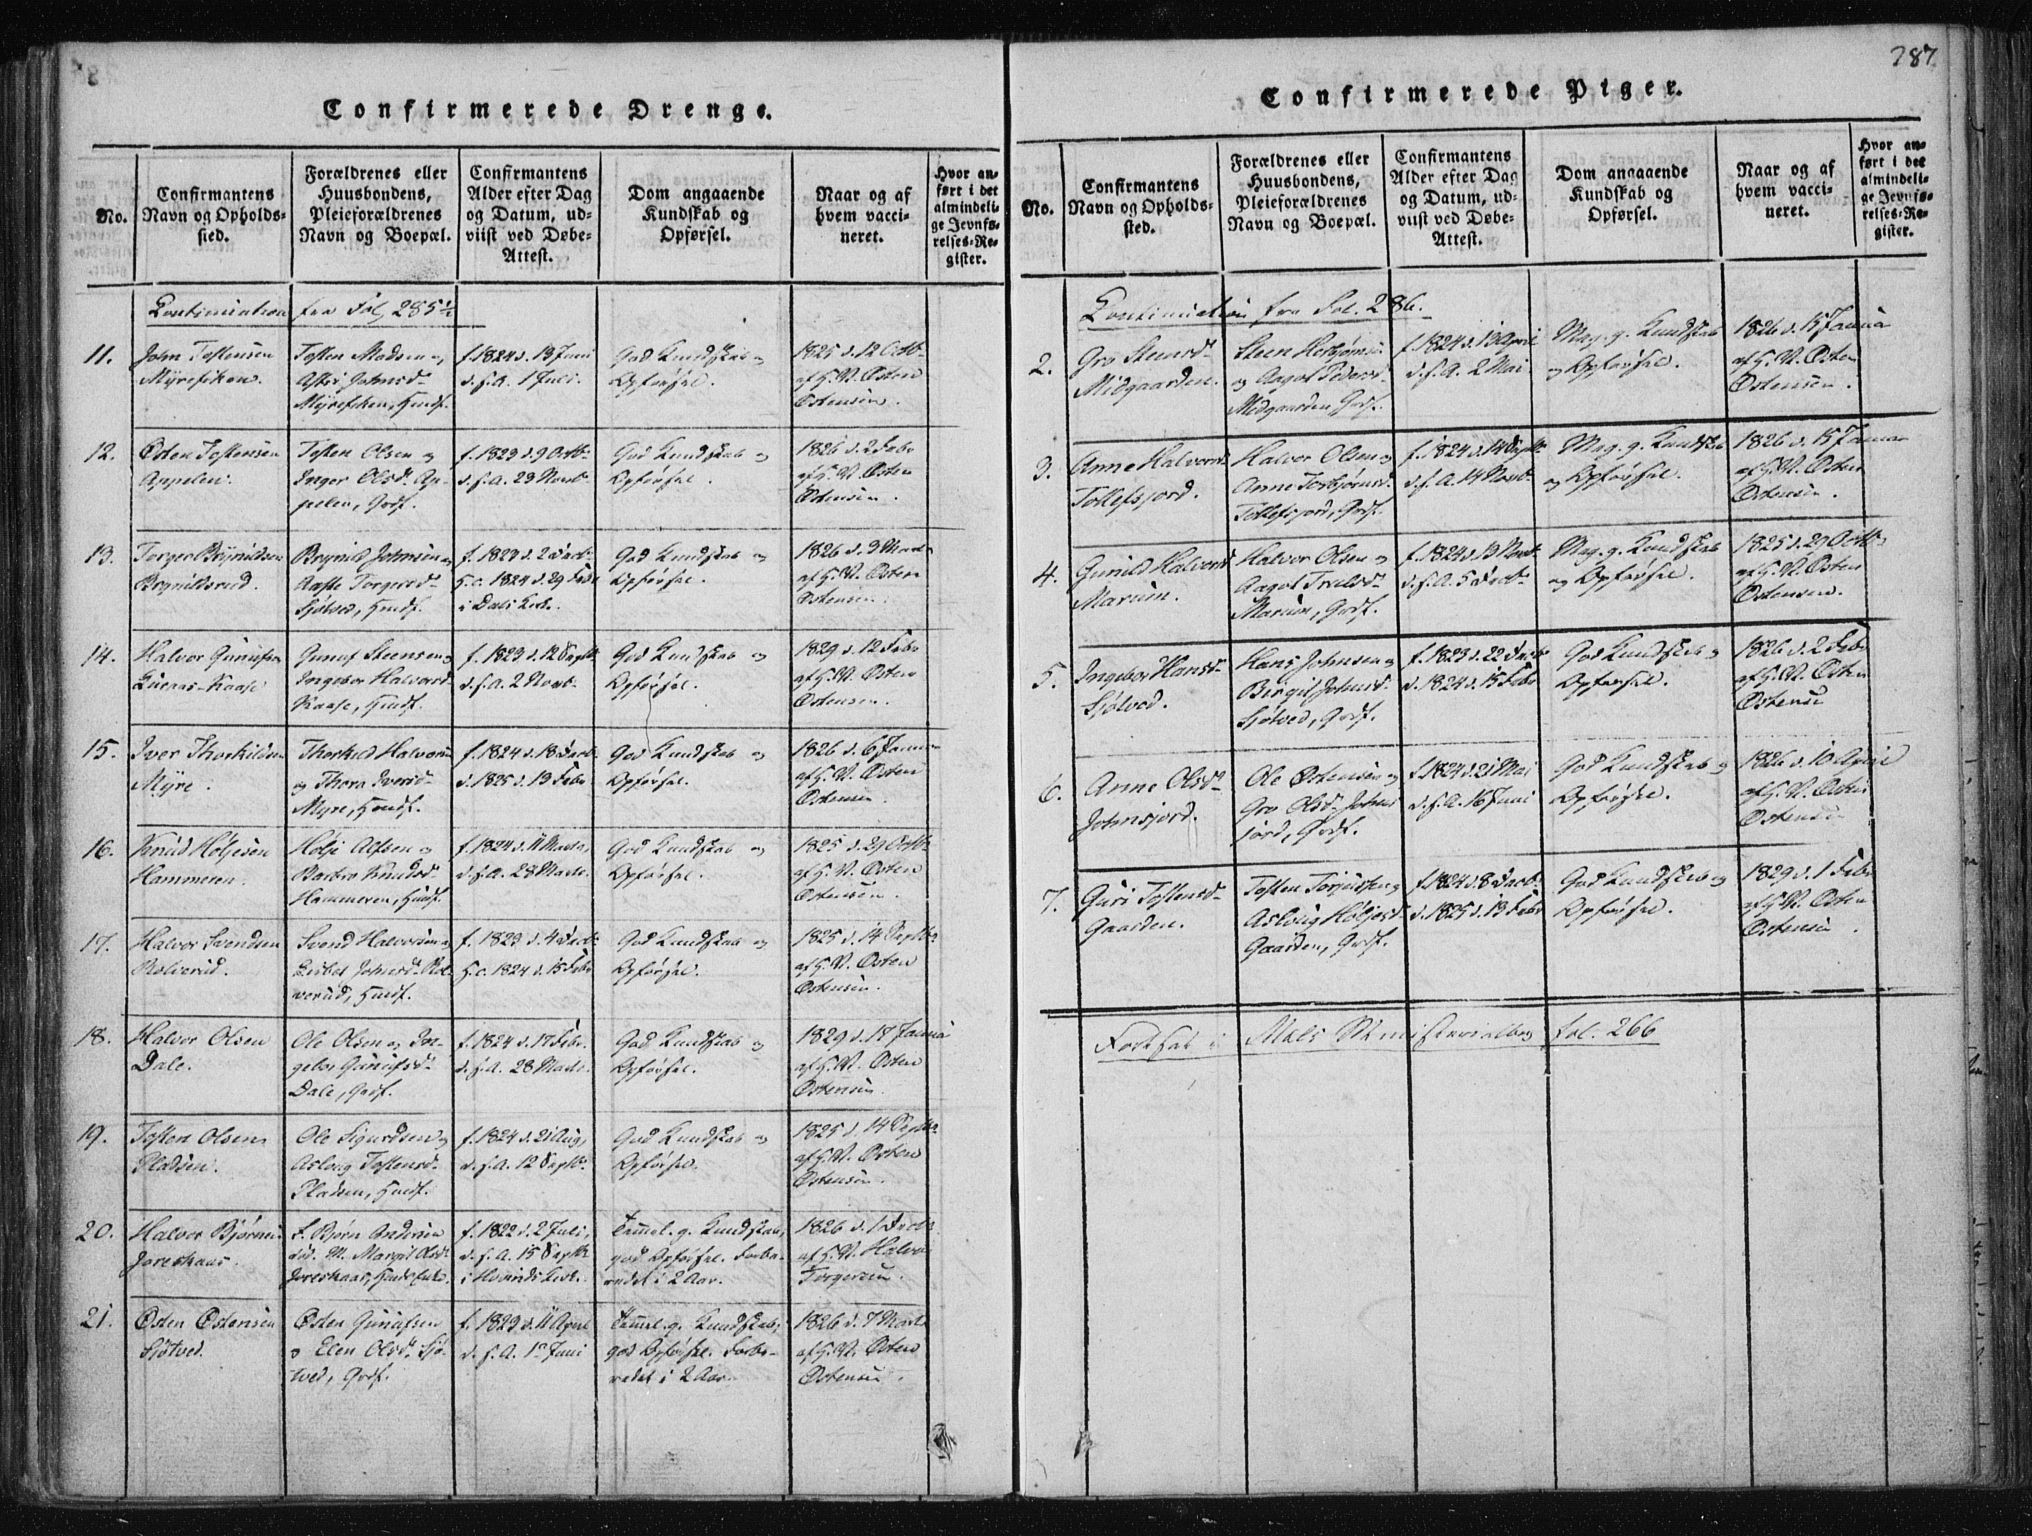 287
Confirmerede Drenge.
No.
Confirmantens
Navn og Opholds-
sted.
Forældrenes eller
Huusbondens,
Pleieforældrenes
Navn og Boepæl.
Confirmantens
Alder efter Dag
og Datum, ud-
viist ved Døbe-
Attest.
Dom angaaende
Kundskab og
Opførsel.
Naar og af
hvem vacci-
neret.
Hvor an-
ført i det
almindeli-
ge Jevnfø-
relses-Re-
gister.
Continuation fra Fol. 285½
11.
John Tostensen
Myrefiken.
Tosten Madsen og
Astri Johnsd.
Myrefiken, Huusf.
f. 1824 d. 13 Juni
d. s. A. 1 Juli.
God Kundskab og
Opførsel.
1825 d. 12 Octb.
af H. V. Østen
Østensen.
12.
Østen Tostensen
Appelen.
Tosten Olsen og
Inger Olsd. Ap-
pelen, Grdf.
f. 1823 d. 9 Octb.
d. s. A. 23 Novb.
God Kundskab og
Opførsel.
1826 d. 2 Febr
af H. V. Østen
Østensen.
13.
Torger Brynildsen
Brynildsrud.
Brynild Johnsen og
Aaste Torgersd.
Sjøtved, Huusf.
f. 1823 d. 2 Decb.
H. c. 1824 d. 29 Febr
i Dals Kirk.
God Kundskab og
Opførsel.
1826 d. 3 Marts
af H. V. Østen
Østensen.
14.
Halvor Gunufsen
Kaase
Gunuf Steensen og
Ingebor Halvorsd.
Kaase, Huusf.
f. 1823 d. 12 Septb.
d. s. A. 2 Novb.
God Kundskab og
Opførsel.
1829 d. 12 Febr
af H. V. Østen
Østensen.
15.
Iver Thorkildsen
Myre.
Thorkild Halvorsen
og Thora Iversd.
Myre, Huusf.
f. 1824 d. 18 Decb.
d. 1825 d. 13 Febr
God Kundskab og
Opførsel.
1826 d. 6 Januar
af H. V. Østen
Østensen.
16.
Knud Høljesen
Hammeren.
Hølje Alfsen og
Barbro Knudsd.
Hammeren, Huusf.
f. 1824 d. 11 Marts,
d. s. A. 28 Marts.
God Kundskab og
Opførsel.
1825 d. 29 Octb.
af H. V. Østen
Østensen.
17.
Halvor Svendsen
Rolverud.
Svend Halvorsen og
Lisbet Johnsd. Rol-
verud, Huusf.
f. 1823 d. 4 Decb.
H. c. 1824 d. 15 Febr
God Kundskab og
Opførsel.
1825 d. 14 Septb.
af H. V. Østen
Østensen.
18.
Halvor Olsen
Dale.
Ole Olsen og In-
gebor Gunufsd.
Dale, Grdf.
f. 1824 d. 17 Febr.
d. s. A. 28 Marts.
God Kundskab og
Opførsel.
1829 d. 17 Janua
af H. V. Østen
Østensen
19.
Tosten Olsen
Pladsen.
Ole Sigurdsen og
Aslaug Tostensd.
Pladsen, Huusf.
f. 1824 d. 21 Aug,
d. s. A. 12 Septb.
God Kundskab og
Opførsel.
1825 d. 14 Septb.
af H. V. Østen
Østensen.
20.
Halvor Bjørnsen
Joreskaas.
F. Bjørn Andersen
død. M. Margit Olsd.
Joreskaas, Huusfolk.
f. 1822 d. 2 Juli,
d. s. A. 15 Septb.
i Hovinds Kirk.
Temmel. g. Kundskab,
god Opførsel. Forbe-
redet i 2 Aar.
1826 d. 1 Decb.
af H. V. Halvor
Torgersen.
21.
Østen Østensen
Sjøtved.
Østen Gunufsen
og Elen Olsd. Sjø-
tved, Grdf.
f. 1823 d. 11 April
d. s. A. 1. Juni
Temmel. g. Kundskab,
god Opførsel. Forbe-
redet i 2 Aar.
1826 d. 7 Marts
af H. V. Østen
Østensen.
Confirmerede Piger.
No.
Confirmantens
Navn og Opholds-
sted.
Forældrenes eller
Huusbondens,
Pleieforældrenes
Navn og Boepæl.
Confirmantens
Alder efter Dag
og Datum, ud-
viist ved Døbe-
Attest.
Dom angaaende
Kundskab og
Opførsel.
Naar og af
hvem vacci-
neret.
Hvor an-
ført i det
almindeli-
ge Jevnfø-
relses-Re-
gister.
Continuation fra Fol. 286.
2.
Gro Steensd.
Midgaarden.
Steen Herbjørnsen
og Aagot Pedersd.
Midgaarden, Grdf.
f. 1824 d. 13 April
d. s. A. 2 Mai
Meg. g. Kundskab
og Opførsel.
1826 d. 15 Janua
af H. V. Østen
Østensen.
3.
Anne Halvorsd.
Tollefsjord.
Halvor Olsen og
Anne Torbjørnsd.
Tollefsjord, Grdf.
f. 1824 d. 14 Septb.
d. s. A. 14 Novb.
Meg. g. Kundskab
og Opførsel.
1826 d. 15 Januar
af H. V. Østen
Østensen.
4.
Gunild Halvorsd.
Marum.
Halvor Olsen og
Aagot Trulsd.
Marum, Grdf.
f. 1824 d. 13 Novb.
d. s. A. 5 Decb.
Meg. g. Kundskab
og Opførsel.
1825 d. 29 Octb.
af H. V. Østen
Østensen.
5.
Ingebor Hansd.
Sjøtved.
Hans Johnsen og
Birgit Johnsd.
Sjøtved, Grdf.
f. 1823 d. 22 Decb.
d. 1824 d. 15 Febr
God Kundskab og
Opførsel.
1826 d. 2 Febr
af H. V. Østen
Østensen
6.
Anne Olsd.
Johnsjord.
Ole Østensen og
Gro Olsd. Johns-
jord, Grdf.
f. 1824 d. 21 Mai
d. s. A. 16 Juni
God Kundskab og
Opførsel.
1826 d. 10 April
af H. V. Østen
Østensen
7.
Guri Tostensd.
Gaarden.
Tosten Torjussen og
Aslaug Høljesd.
Gaarden, Grdf.
f. 1824 d. 8 Decb.
d. 1825 d. 13 Febr
God Kundskab og
Opførsel.
1829 d. 1 Febr
af H. V. Østen
Østensen.
Fortsat i Mæls Ministerialbog fol. 266